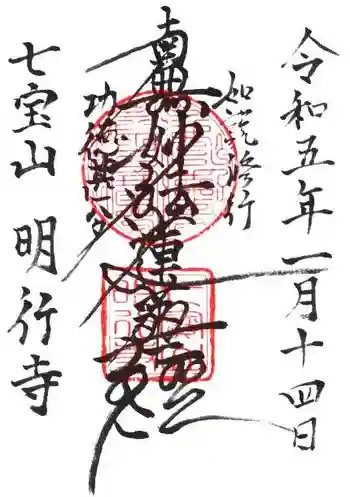 令和五年一月十四日
如説修行
南無妙法蓮華經
功徳
七宝山 明行寺